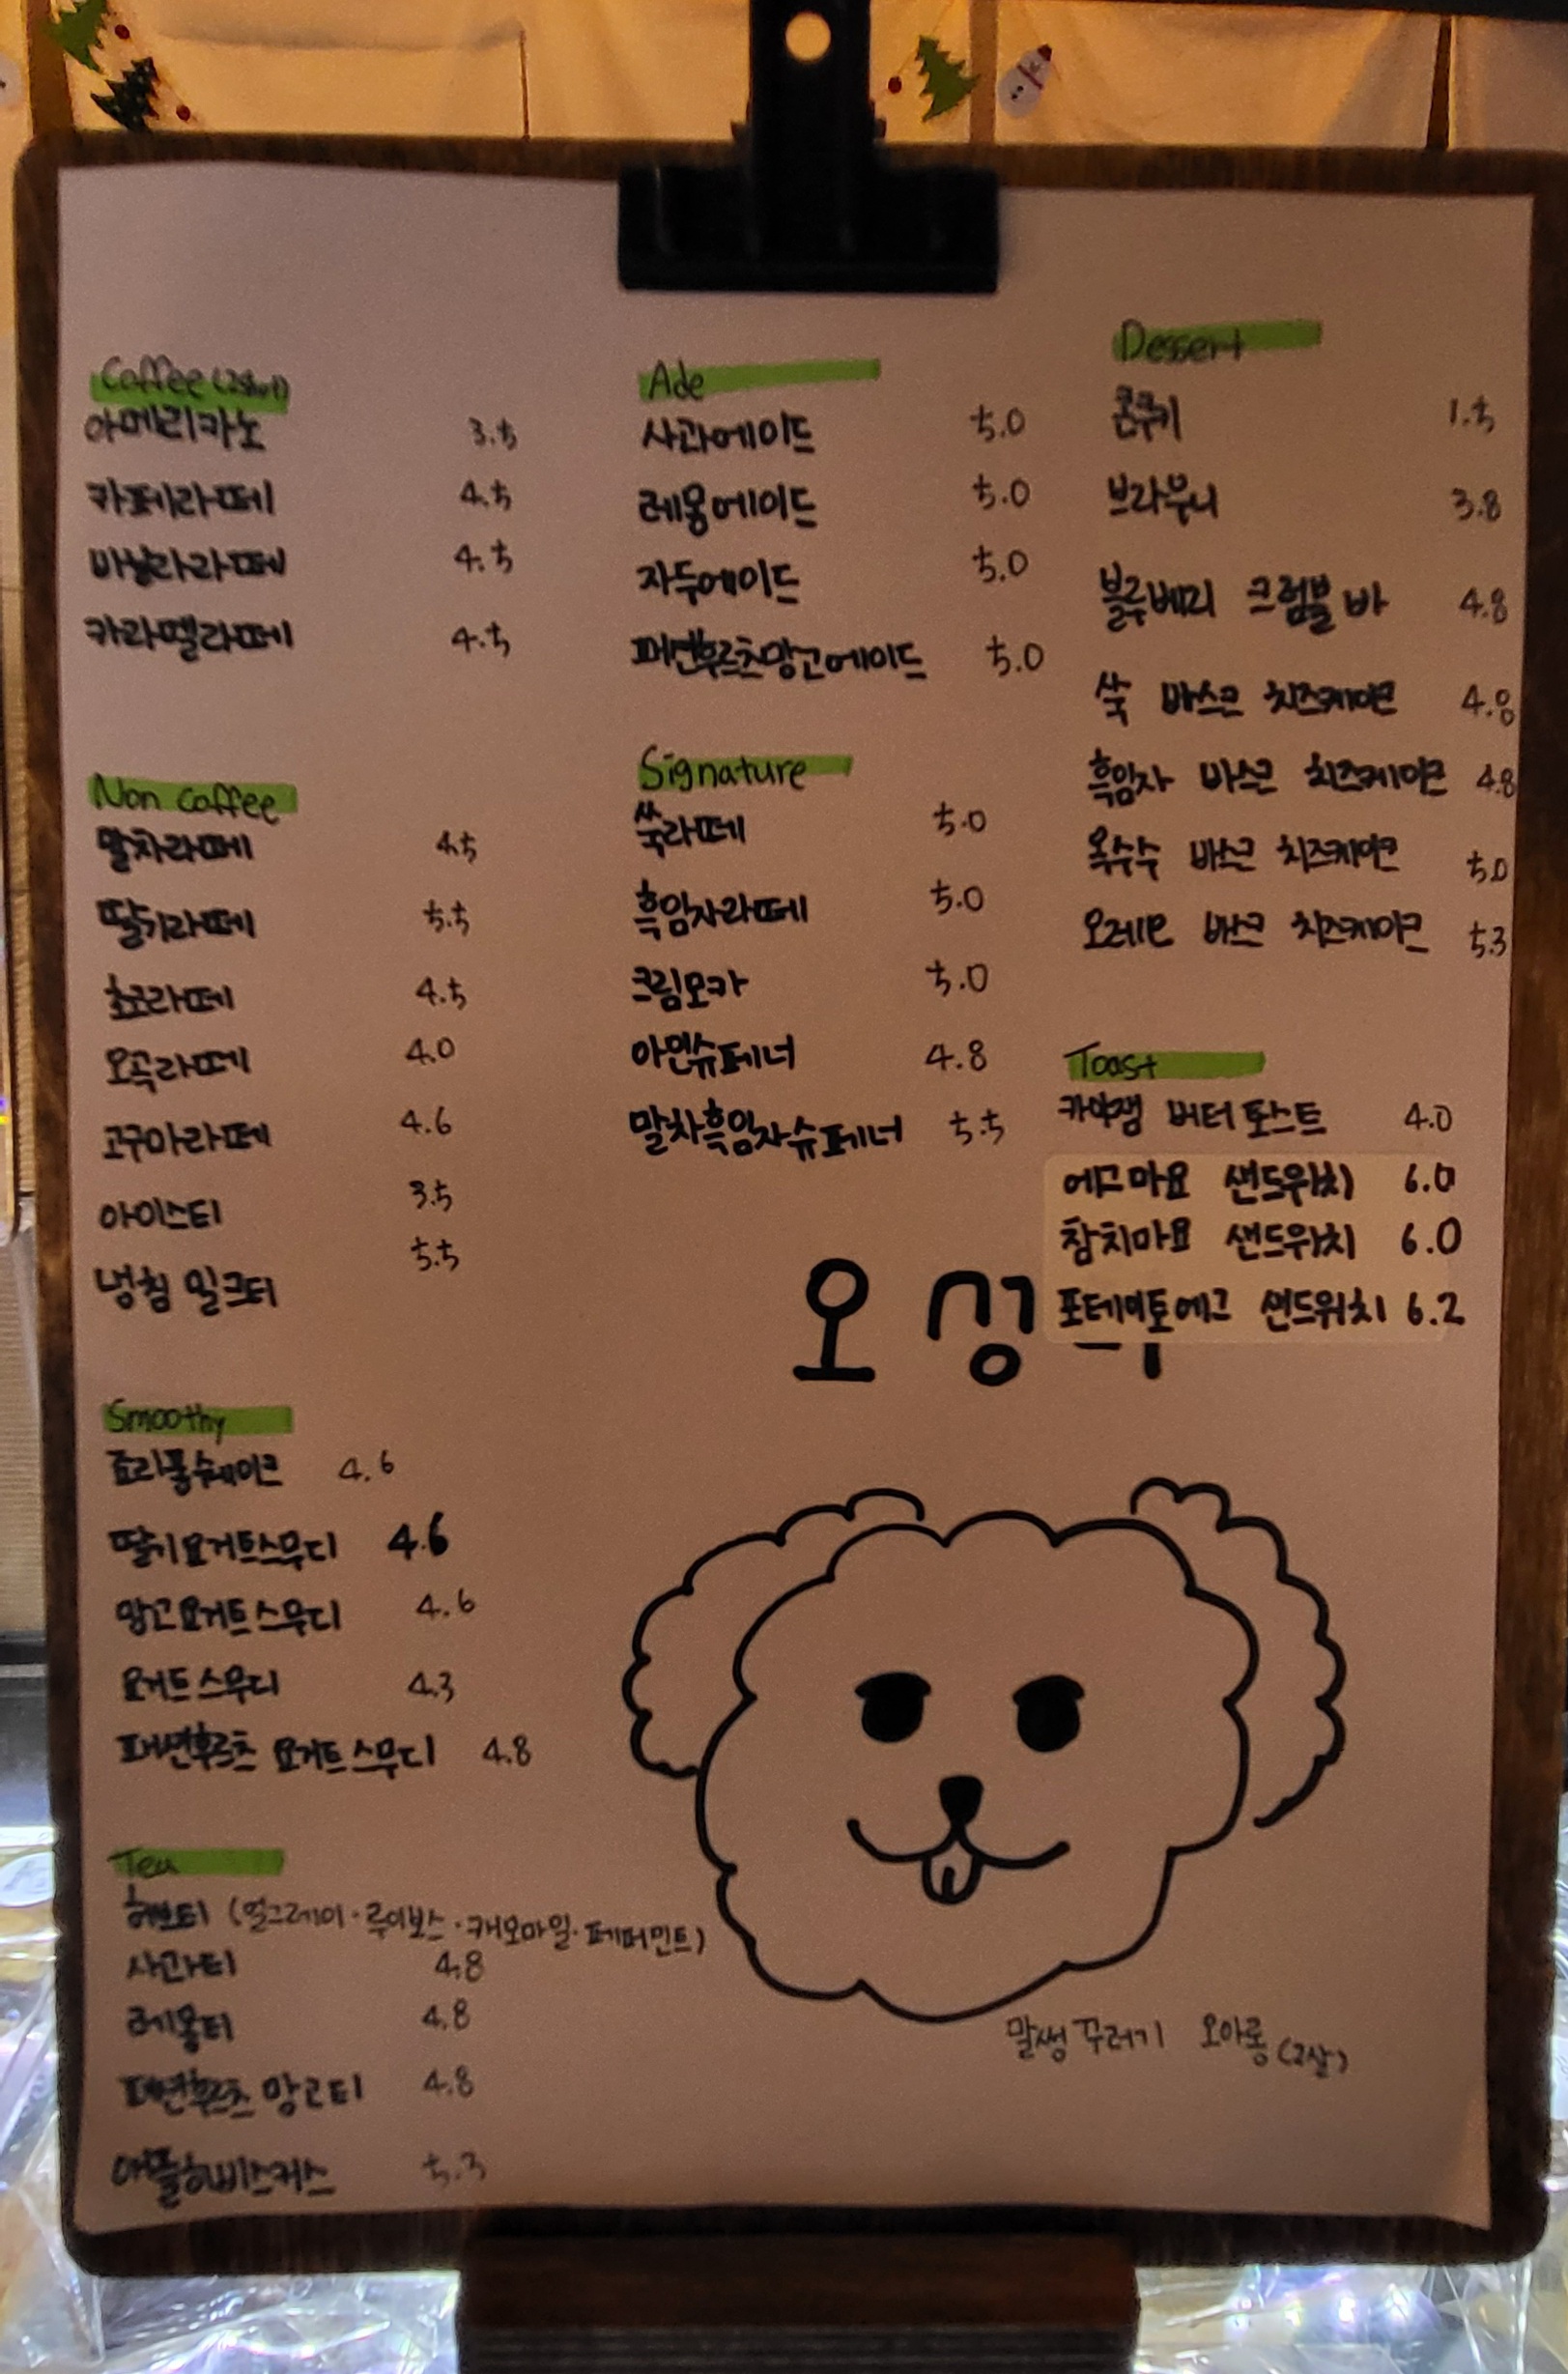 Coffee (2shot)
아메리카노 3.5
카페라떼 4.5
바닐라라떼 4.5
카라멜라떼 4.5
Non coffee
말차라떼 4.5
딸기라떼 5.5
초코라떼 4.5
오곡라떼 4.0
고구마라떼 4.6
아이스티 3.5
냉침 밀크티 5.5
Smoothy
쵸리퐁쉐이크 4.6
딸기요거트스무디 4.6
망고요거트스무디 4.6
요거트스무디 4.3
패션후르츠 요거트스무디 4.8
Tea
허브티 (얼그레이·루이보스·캐모마일·페퍼민트)
사과티 4.8
레몽티 4.8
패션후르츠 망고티 4.8
애플히비스커스 5.3
Ade
사과에이드 5.0
레몽에이드 5.0
자두에이드 5.0
패션후르츠망고에이드 5.0
Signature
쑥라떼 5.0
흑임자라떼 5.0
크림모카 5.0
아인슈페너 4.8
말차흑임자슈페너 5.5
Dessert
콘쿠키 1.5
브라우니 3.8
블루베리 크럼블 바 4.8
쑥 바스크 치즈케이크 4.8
흑임자 바스크 치즈케이크 4.8
옥수수 바스크 치즈케이크 5.0
오레오 바스크 치즈케이크 5.3
Toast
카야잼 버터 토스트 4.0
에그마요 샌드위치 6.0
참치마요 샌드위치 6.0
포테이토에그 샌드위치 6.2
오
말썽꾸러기 오아롱 (2살)